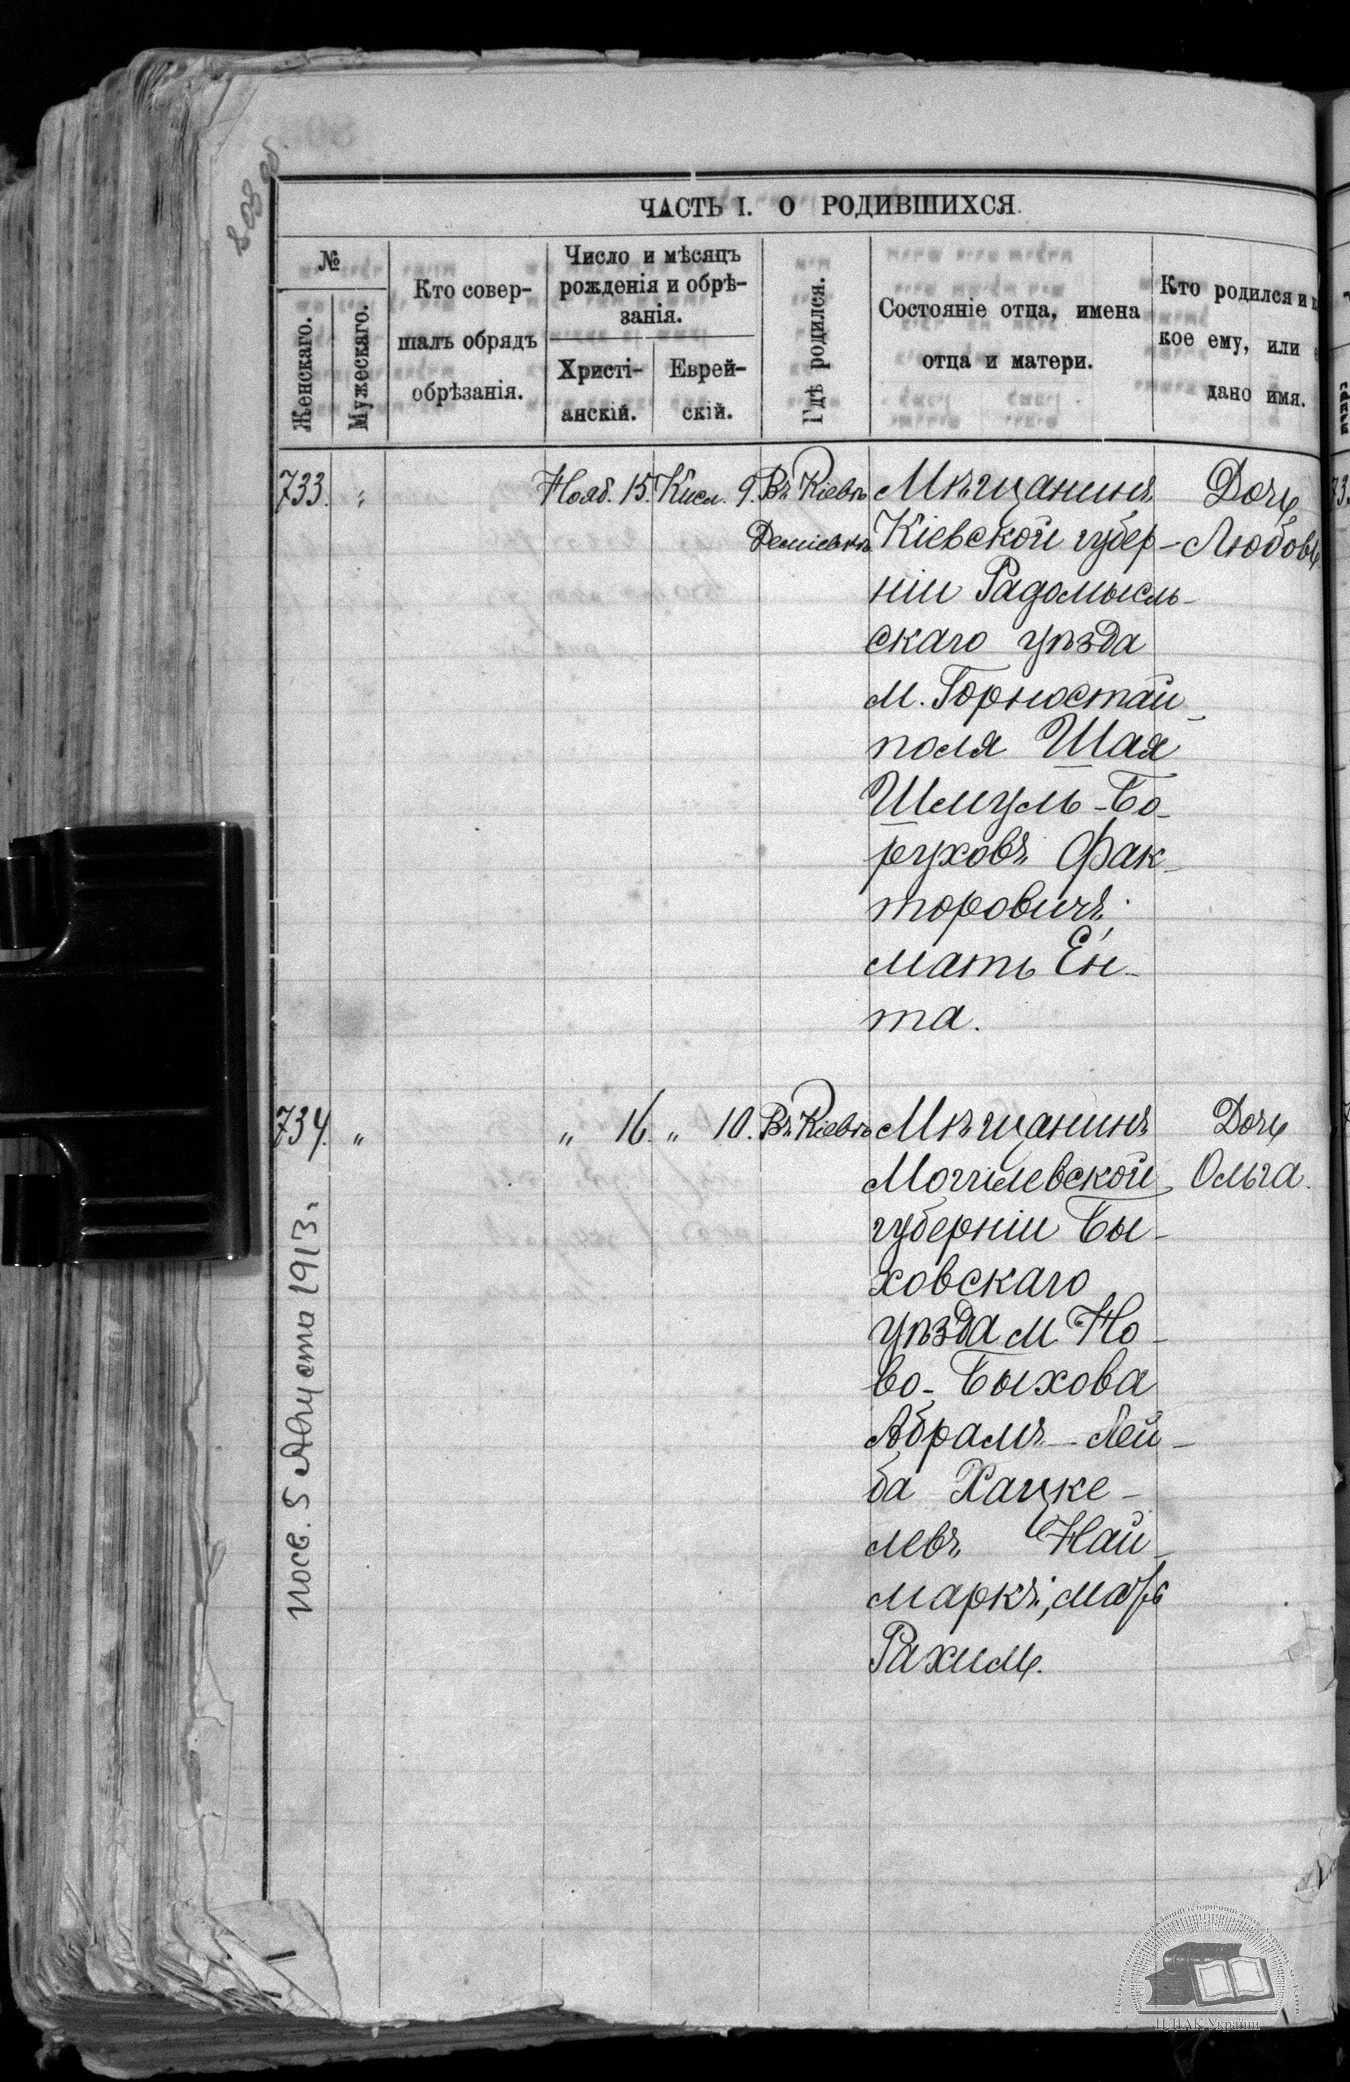 803 об.
ЧАСТЬ I. О РОДИВШИХСЯ
№
Женскаго.
Мужескаго.
Кто совер-
шалъ обрядъ
обрѣзанія.
Число и мѣсяцъ
рожденія и обрѣ-
занія.
Христі-
анскій.
Еврей-
скій.
Гдѣ родился.
Состояніе отца, имена
отца и матери.
Кто родился и к
кое ему, или
дано имя.
733. „ Нояб. 15. Кисл. 9. Въ Кіевѣ Мѣщанинъ Дочь
Деміевкѣ Кіевской губер- Любовь
ніи Радомысль-
скаго уѣзда
м. Горностай-
поля Шая
Шмуль-Бо-
руховъ Фак-
торовичъ;
мать Ен-
та.
734. „ „ 16. „ 10. Въ Кіевѣ Мѣщанинъ Дочь
Могилевской Ольга.
губерніи Бы-
ховскаго
уѣзда м. Но-
во-Быхова
Абрамъ-Лей-
ба Хацке-
левъ Най-
маркъ, мать
Рахиль.
посв. 5 Августа 1913.
ЦДІАК України